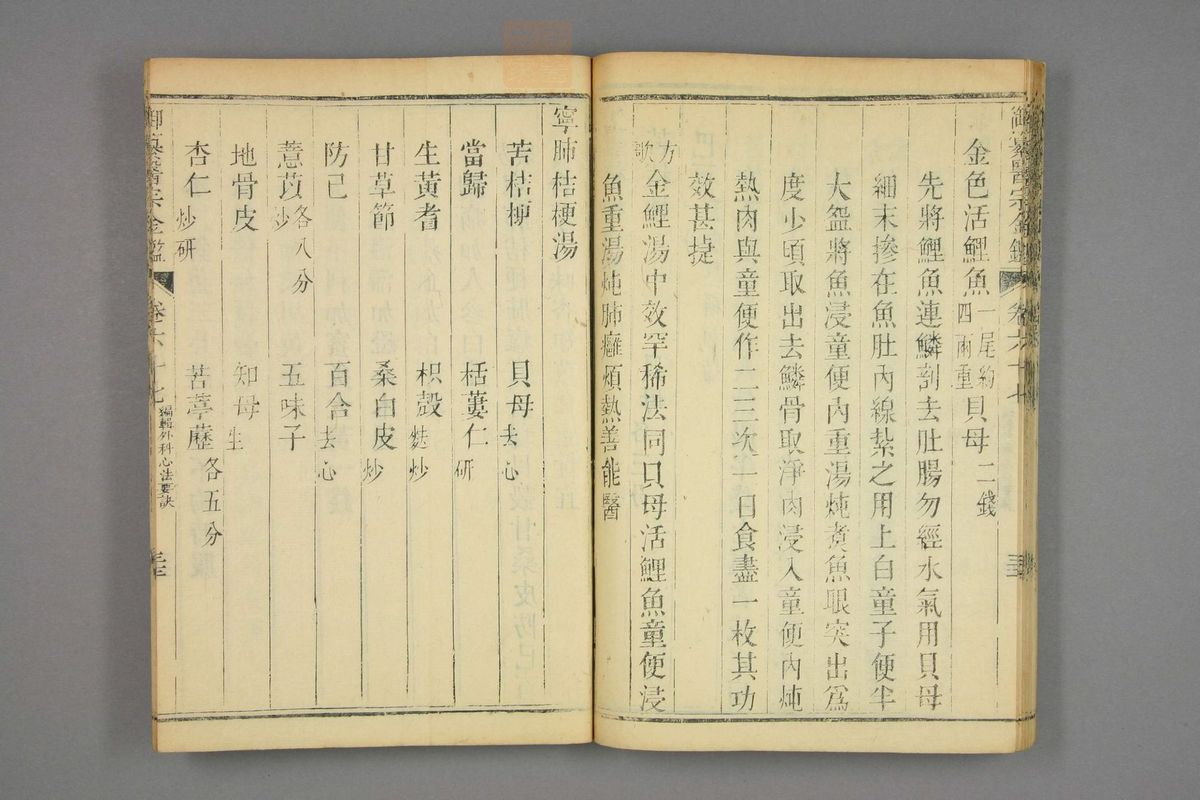 御纂醫宗金鑑 卷六十七
金色活鯉魚一尾約四兩重 貝母二錢
先將鯉魚連鱗剖去肚腸勿經水氣用貝母
細末摻在魚肚內線紮之用上白童子便半
大盌將魚浸童便內重湯炖煑魚眼突出爲
度少頃取出去鱗骨取淨肉浸入童便內炖
熱肉與童便作二三次一日食盡一枚其功
效甚捷
方歌 金鯉湯中效罕稀法同貝母活鯉魚童便浸
魚重湯炖肺癰煩熱善能醫
寧肺桔梗湯
苦桔梗 貝母去心
當歸 栝蔞仁研
生黃耆 枳殼麩炒
甘草節 桑白皮炒
防己 百合去心
薏苡炒各八分 五味子
地骨皮 知母生
杏仁炒研 苦葶藶各五分
御纂醫宗金鑑 卷六十七 編輯外科心法要訣